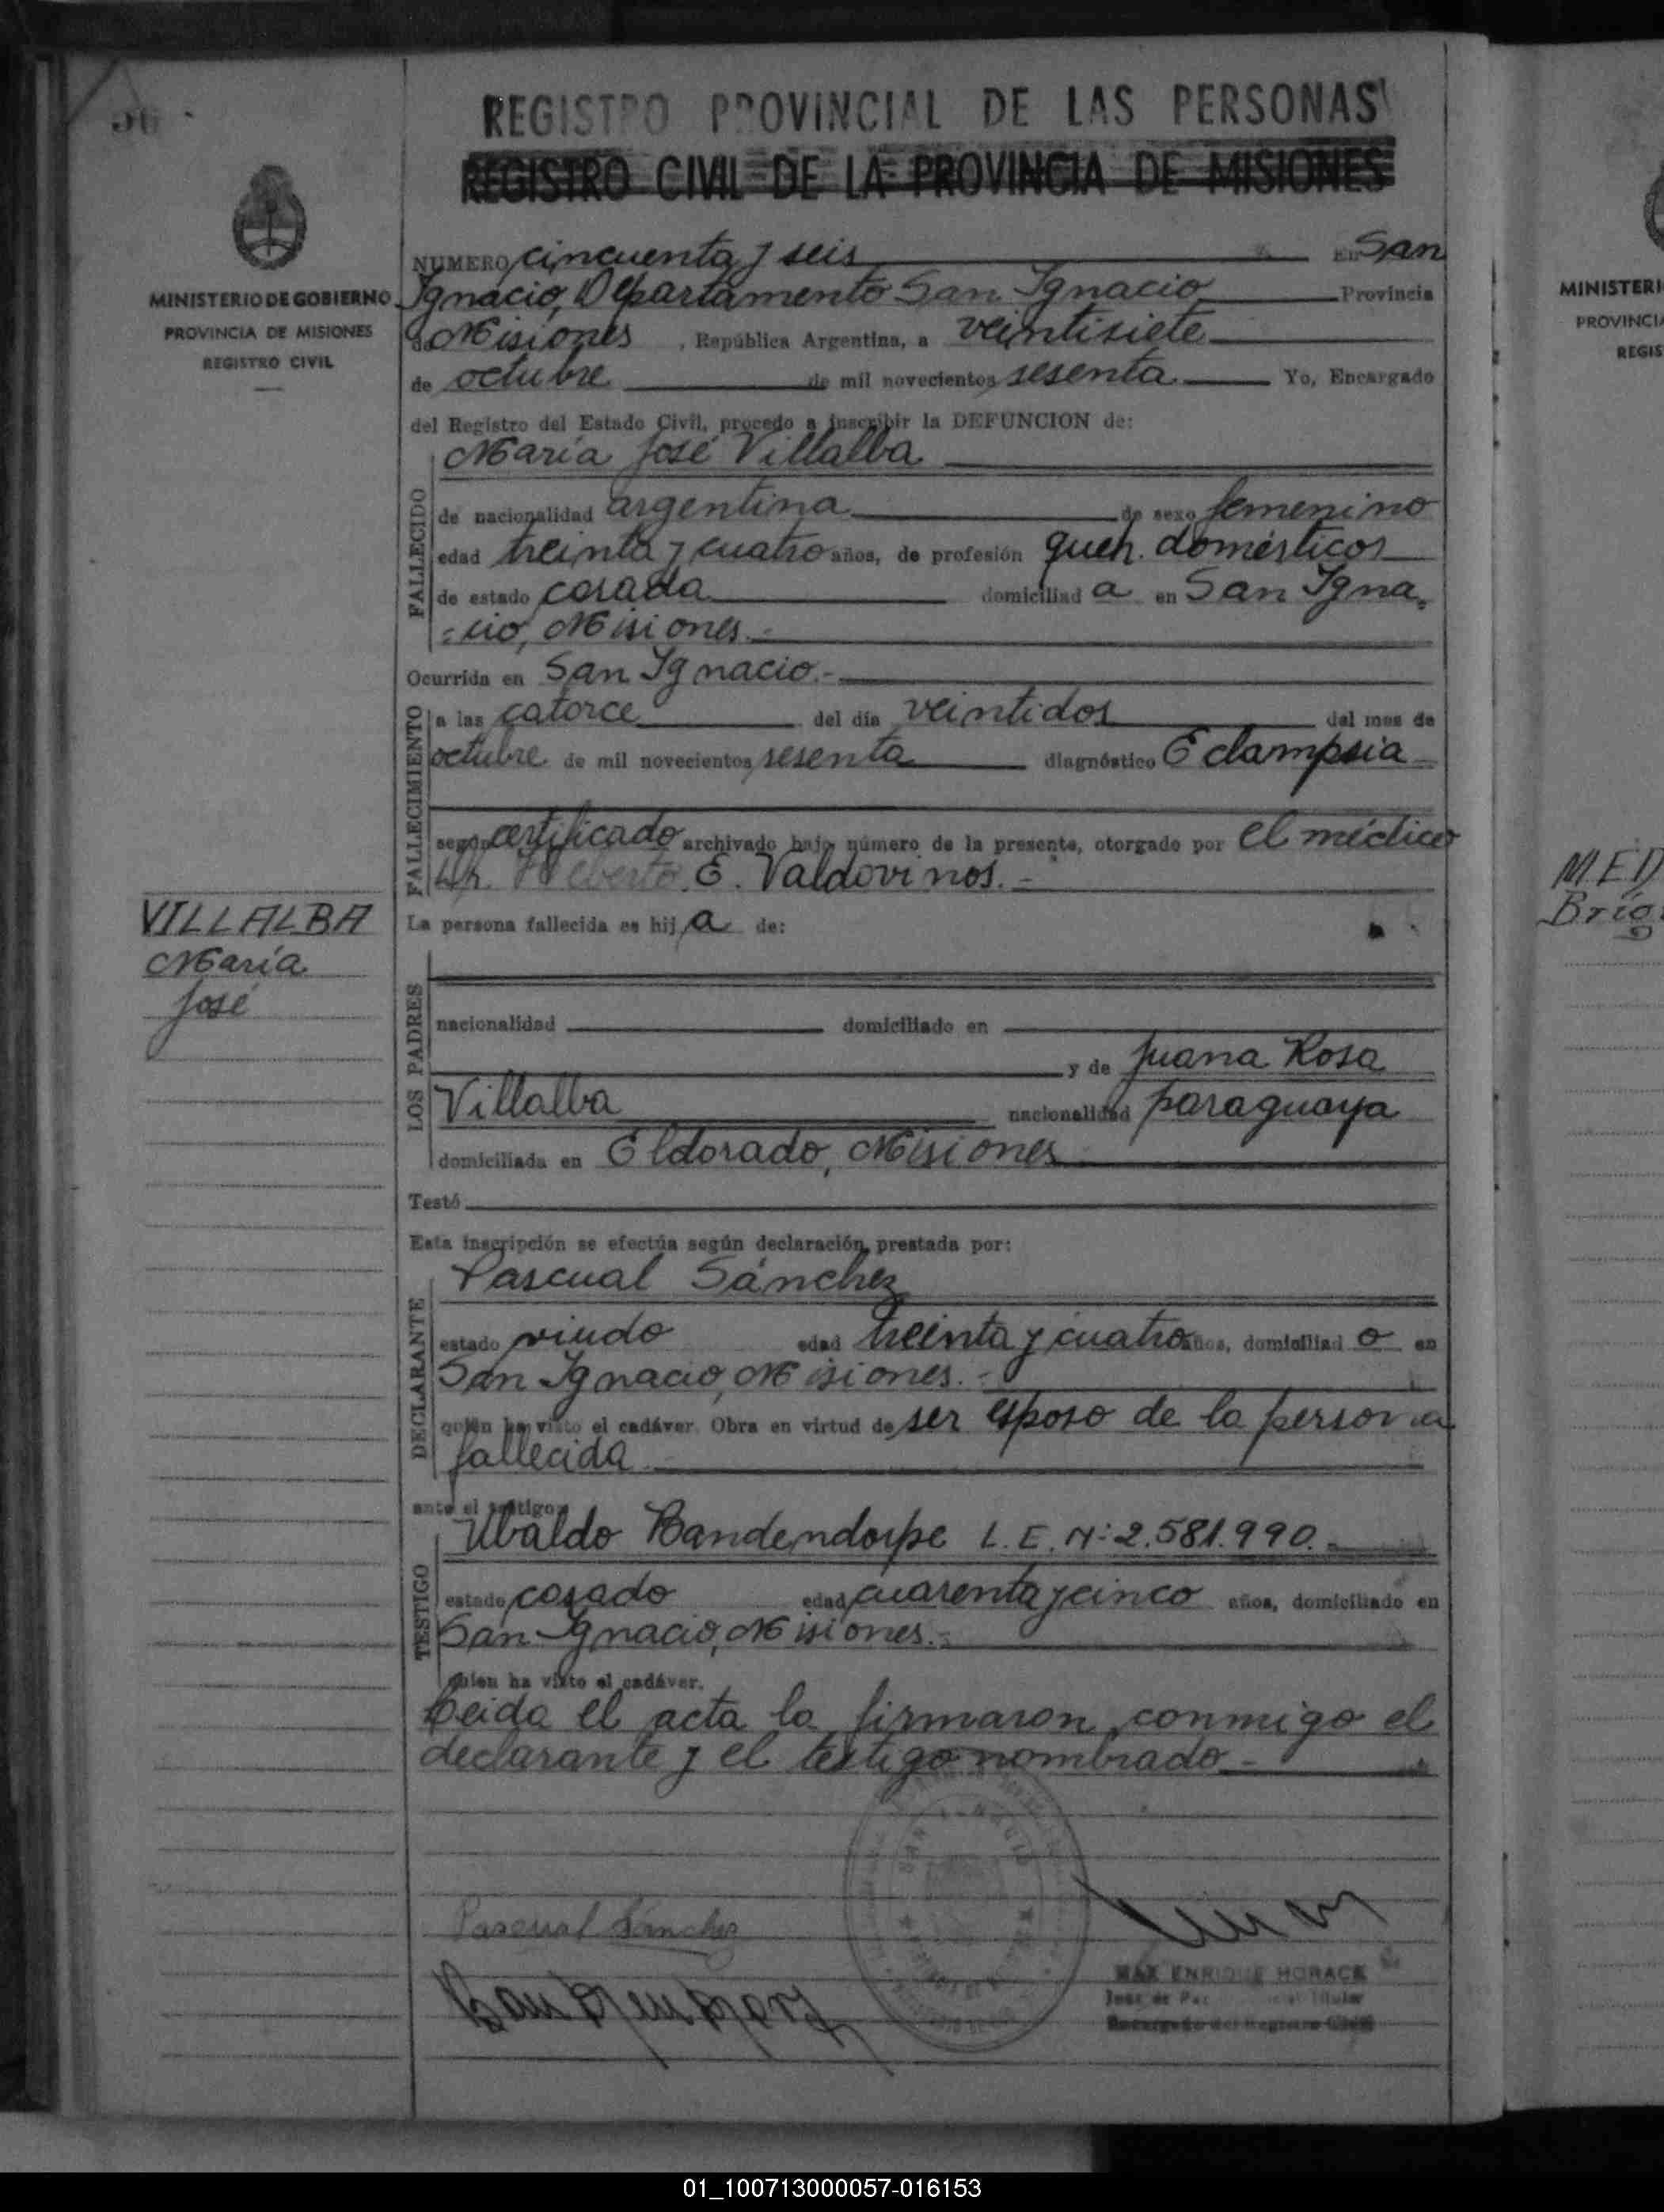 REGISTRO PROVINCIAL DE LAS PERSONAS
REGISTRO CIVIL DE LA PROVINCIA DE MISIONES
MINISTERIO DE GOBIERNO
PROVINCIA DE MISIONES
REGISTRO CIVIL
NUMERO cincuenta y seis En San
Ignacio, Departamento San Ignacio Provincia
de Misiones, República Argentina, a veintisiete
de octubre de mil novecientos sesenta Yo, Encargado
del Registro del Estado Civil, procedo a inscribir la DEFUNCION de:
María José Villalba
FALLECIDO
de nacionalidad argentina de sexo femenino
edad treinta y cuatro años, de profesión queh. domésticos
de estado casada domiciliad a en San Igna=
=cio, Misiones.-
Ocurrida en San Ignacio.-
FALLECIMIENTO
a las catorce del día veintidos del mes de
octubre de mil novecientos sesenta diagnóstico Eclampsia
según certificado archivado bajo número de la presente, otorgado por el médico
E. Valdovinos.-
VILLALBA
María
José
La persona fallecida es hij a de:
LOS PADRES
nacionalidad domiciliado en
y de Juana Rosa
Villalba nacionalidad paraguaya
domiciliada en Eldorado, Misiones
Testó
Esta inscripción se efectúa según declaración prestada por:
DECLARANTE
Pascual Sánchez
estado viudo edad treinta y cuatro años, domiciliad o en
San Ignacio, Misiones.-
quien ha visto el cadáver. Obra en virtud de ser esposo de la persona
fallecida
ante el testigo:
TESTIGO
Ubaldo Bandendorpe L.E. N: 2.581.990.-
estado casado edad cuarenta y cinco años, domiciliado en
San Ignacio, Misiones.-
quien ha visto el cadáver.
Leida el acta la firmaron conmigo el
declarante y el testigo nombrado.-
Pascual Sánchez
MAX ENRIQUE HORACK
Juez de Paz Titular
Encargado del Registro Civil
MINISTERI
PROVINCIA
REGIS
MED
Brig
01_100713000057-016153